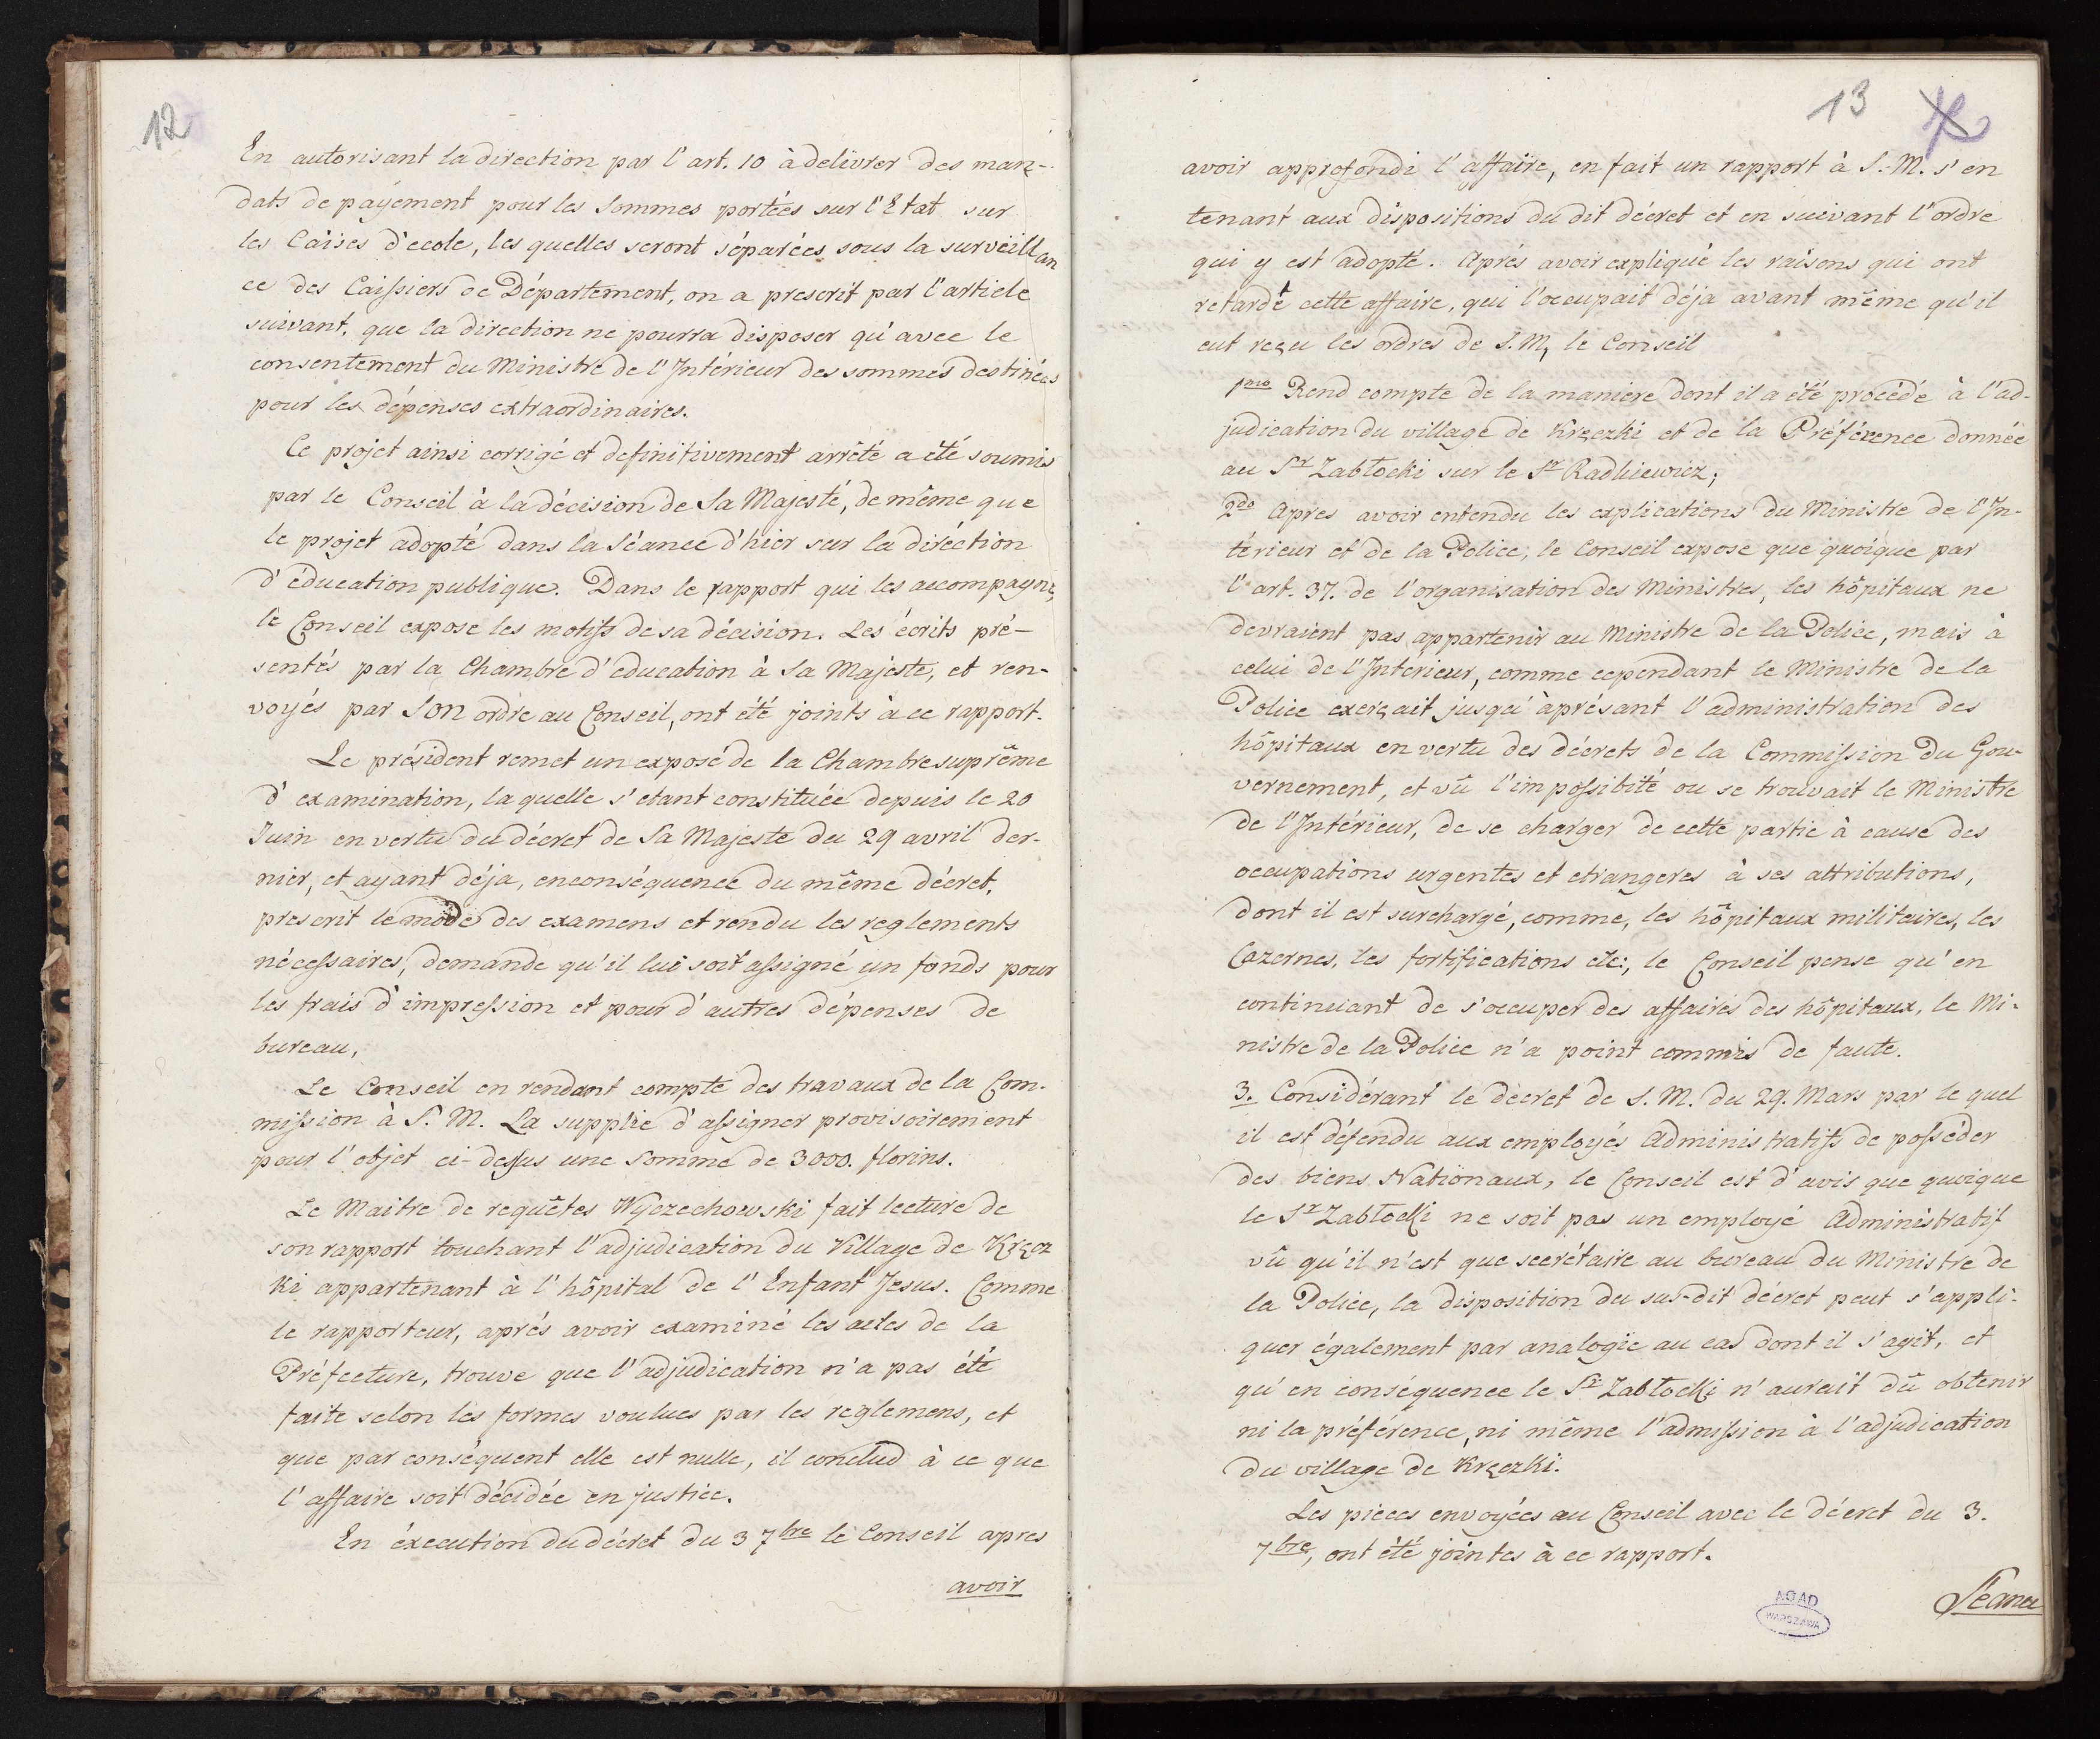 12
En autorisant la direction par l'art. 10 à delivrer des man-
dats de payement pour les sommes portées sur l'Etat sur
les Caises d'ecole, les quelles seront séparées sous la surveillan
ce des Caissiers de Département, on a prescrit par l'article
suivant, que la direction ne pourra disposer qu'avec le
consentement du Ministre de l'Intérieur des sommes destinées
pour les dépenses extraordinaires.
Ce projet ainsi corrigé et definitivement arrêté a été soumis
par le Conseil à la décision de Sa Majesté, de même que
le projet adopté dans la Séance d'hier sur la diréction
d'éducation publique. Dans le rapport qui les accompagne,
le Conseil expose les motifs de sa décision. Les écrits pré-
sentés par la Chambre d'education à Sa Majeste, et ren-
voyés par Son ordre au Conseil, ont été joints à ce rapport.
Le président remet un exposé de la Chambre suprême
d'examination, la quelle s'etant constituée depuis le 20
Juin en vertu du décret de Sa Majeste du 29 avril der-
nier, et ayant déja, en conséquence du même décret,
prescrit le mode des examens et rendu les reglements
nécessaires, demande qu'il lui soit assigné un fonds pour
les frais d'impression et pour d'autres dépenses de
bureau,
Le Conseil en rendant compte des travaux de la Com-
mission à S. M. La supplie d'assigner provisoirement
pour l'objet ci-dessus une somme de 3000. florins.
Le Maitre de requêtes Wyczechowski fait lecture de
son rapport touchant l'adjudication du Village de Kręcz
ki appartenant à l'hôpital de l'Enfant Jesus. Comme
le rapporteur, aprés avoir examiné les actes de la
Préfecture, trouve que l'adjudication n'a pas été
faite selon les formes voulues par les reglemens, et
que par conséquent elle est nulle, il conclud à ce que
l'affaire soit décidée en justice.
En éxecution du décret du 3 7bre le Conseil apres
avoir
13
12
avoir approfondi l'affaire, en fait un rapport à S. M. s'en
tenant aux dispositions du dit décret et en suivant l'ordre
qui y est adopté. Aprés avoir expliqué les raisons qui ont
retardé cette affaire, qui l'occupait déja avant même qu'il
eut reçu les ordres de S. M, le Conseil
1mo Rend compte de la maniere dont il a été procédé à l'ad-
judication du village de Kręczki et de la Préférence donnée
au Sr Zabłocki sur le Sr Radkiewicz;
2do Apres avoir entendu les explications du Ministre de l'In-
térieur et de la Police, le Conseil expose que quoique par
l'art. 37. de l'organisation des Ministres, les hôpitaux ne
devraient pas appartenir au Ministre de la Police, mais à
celui de l'Interieur, comme cependant le Ministre de la
Police exerçait jusqu'àprésant l'administration des
hôpitaux en vertu des décrets de la Commission du Gou-
vernement, et vû l'impossibité ou se trouvait le Ministre
de l'Intérieur, de se charger de cette partie à cause des
occupations urgentes et etrangeres à ses attributions,
dont il est surchargé, comme, les hôpitaux militaires, les
Cazernes, les fortifications etc:, le Conseil pense qu'en
continuant de s'occuper des affaires des hôpitaux, le Mi-
nistre de la Police n'a point commis de faute.
3. Considérant le décret de S. M. du 29. Mars par le quel
il est défendu aux employés Administratifs de posséder
des biens Nationaux, le Conseil est d'avis que quoique
le Sr Zabłocki ne soit pas un employé Administratif
vû qu'il n'est que secrétaire au bureau du Ministre de
la Police, la disposition du sus-dit décret peut s'appli-
quer également par analogie au cas dont il s'agit, et
qu'en conséquence le Sr Zabłocki n'aurait dû obtenir
ni la préférence, ni même l'admission à l'adjudication
du village de Kręczki.
Les pieces envoyées au Conseil avec le décret du 3.
7bre, ont été jointes à ce rapport.
Séance
AGAD
WARSZAWA